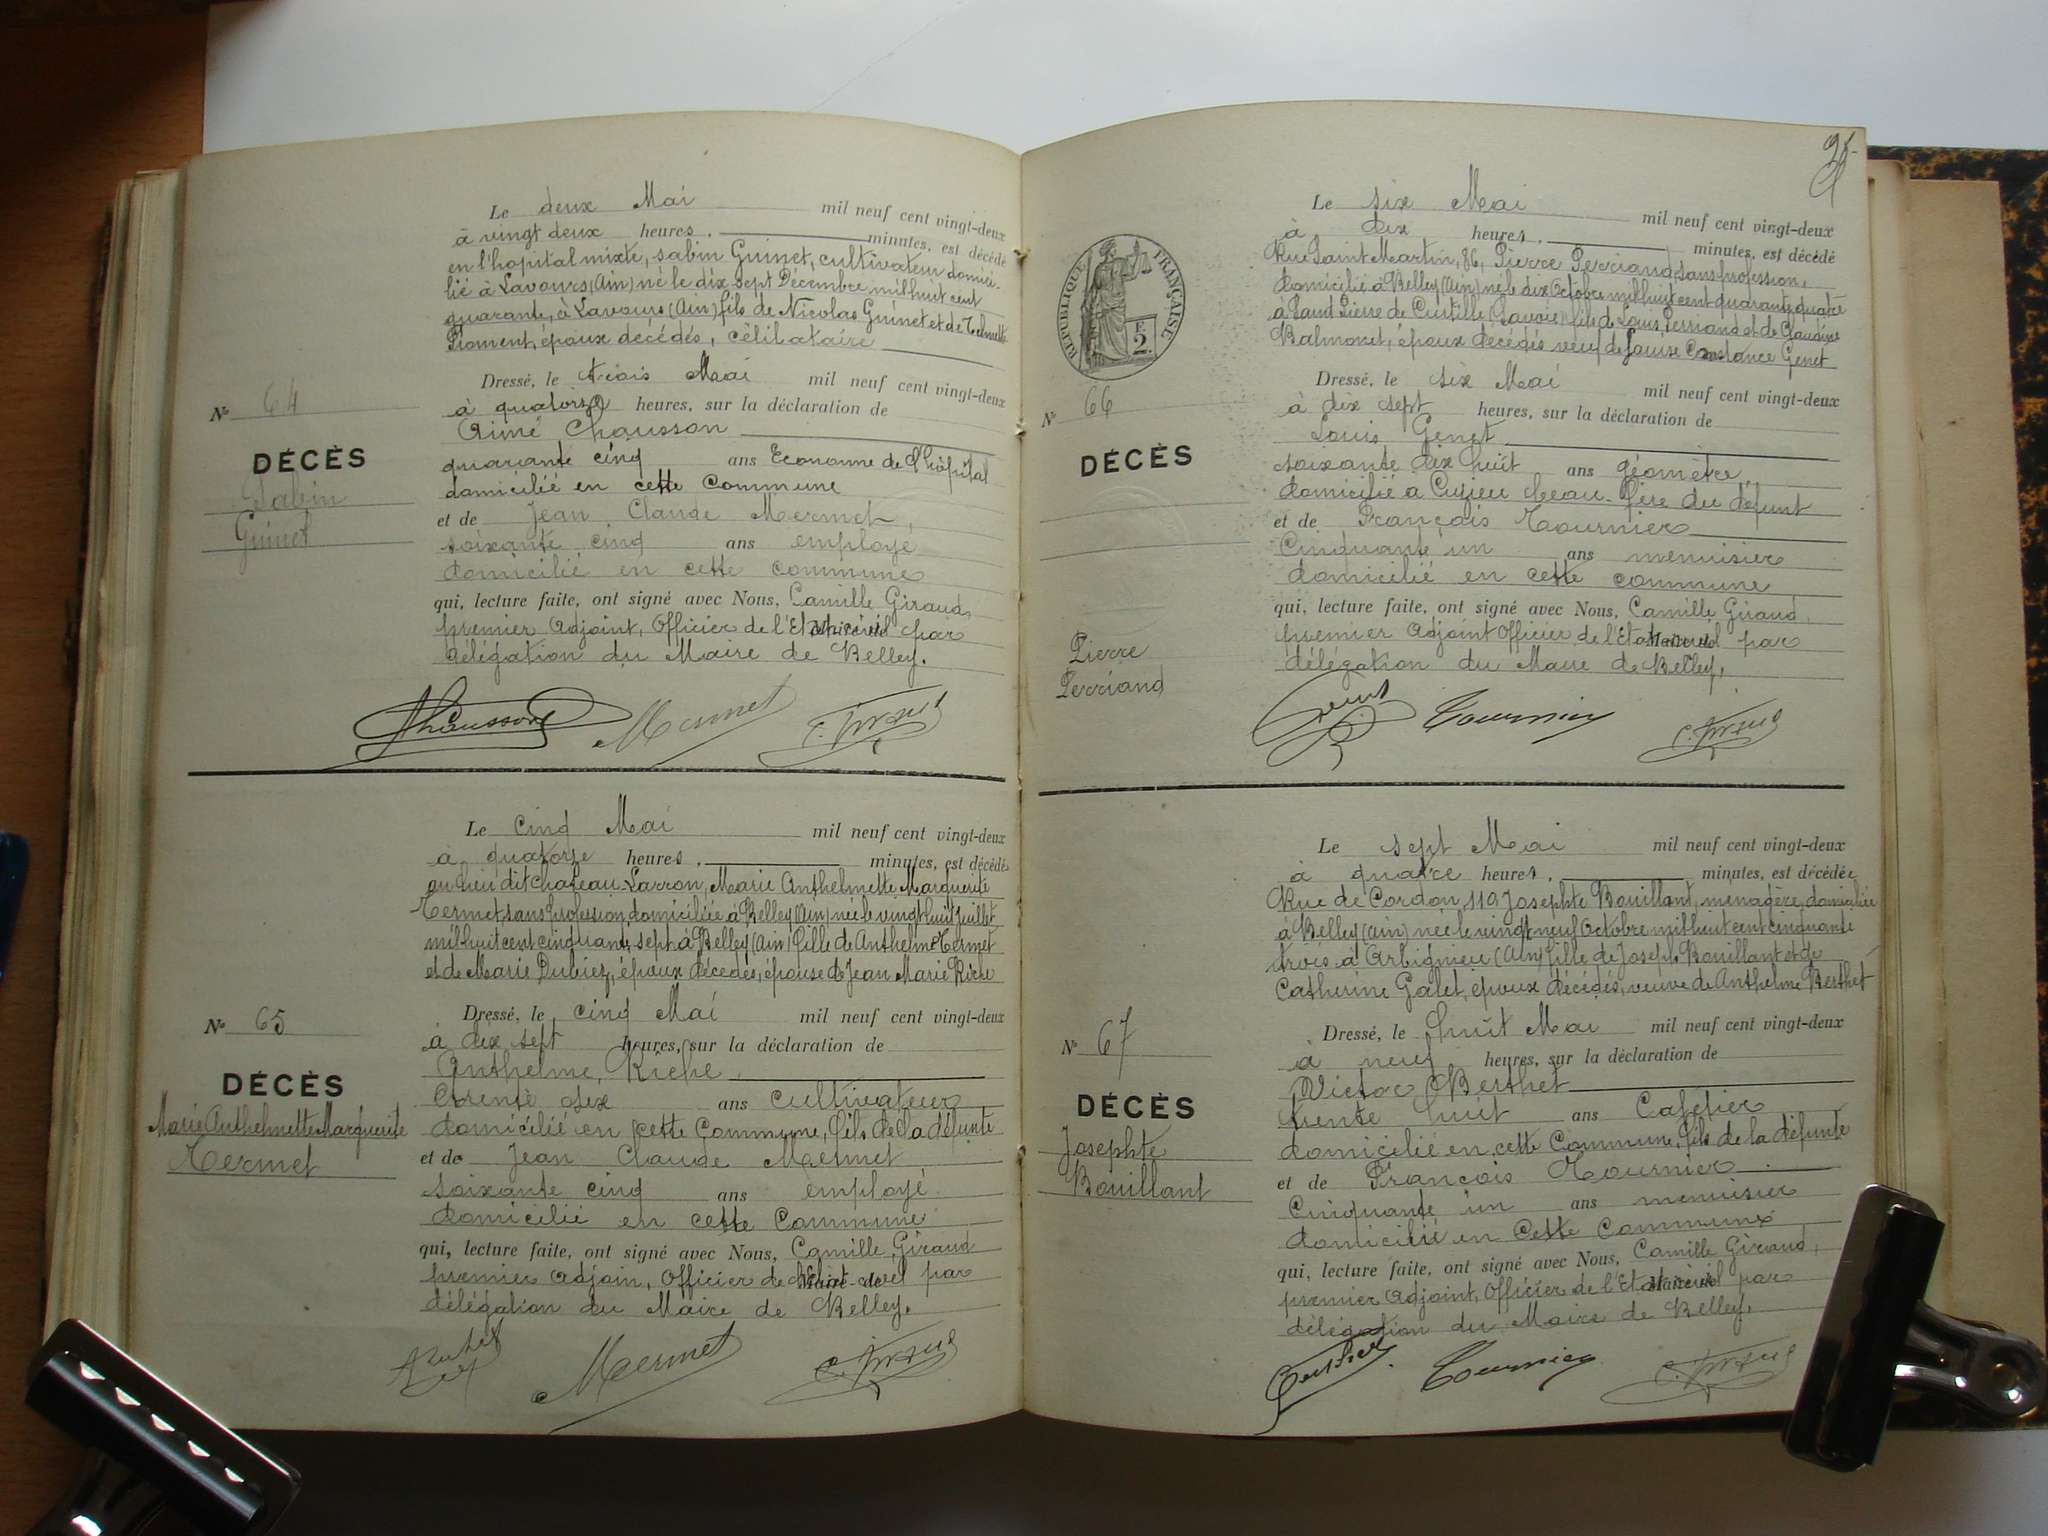 Le deux Mai mil neuf cent vingt-deux
à vingt deux heures, minutes, est décédé
en l'hopital mixte, Sabin Guinet, cultivateur domici-
lié à Lavours (Ain) né le dix sept Décembre mil huit cent
quarante, à Lavours (Ain) fils de Nicolas Guinet et de
époux décédés, célibataire
Dressé, le trois Mai mil neuf cent vingt-deux
à quatorze heures, sur la déclaration de
Aimé Chausson
quarante cinq ans Econome de l'hôpital
domicilié en cette Commune
et de Jean Claude Mermet,
soixante cinq ans employé
domicilié en cette commune
qui, lecture faite, ont signé avec Nous, Camille Giraud,
premier Adjoint, Officier de l'Etat civil par
délégation du Maire de Belley.
Chausson Mermet C. Giraud
N° 64
DÉCÈS
Sabin
Guinet
Le cinq Mai mil neuf cent vingt-deux
à quatorze heures, minutes, est décédé
au lieu dit Chateau-Larron, Marie Anthelmette Marguerite
Termet, sans profession, domiciliée à Belley (Ain) née le vingt huit juillet
mil huit cent cinquante sept à Belley (Ain) fille de Anthelme Termet
et de Marie Dubiez, époux décédés, épouse de Jean Marie Riche
Dressé, le cinq Mai mil neuf cent vingt-deux
à dix sept heures, sur la déclaration de
Anthelme Riche
trente six ans cultivateur
domicilié en cette Commune, fils de la défunte
et de Jean Claude Mermet
soixante cinq ans employé
domicilié en cette Commune
qui, lecture faite, ont signé avec Nous, Camille Giraud
premier adjoin, Officier de civil par
délégation du Maire de Belley.
Mermet C. Giraud
N° 65
DÉCÈS
Marie Anthelmette Marguerite
Termet
RÉPUBLIQUE FRANÇAISE
2 F.
Le six Mai mil neuf cent vingt-deux
à dix heures, minutes, est décédé
Rue Saint Martin, 86, Pierre Perriand, sans profession,
domicilié à Belley (Ain) né le dix Octobre mil huit cent quarante quatre
à Saint Pierre de Curtille (Savoie) fils de Louis Perriand et de Claudine
Balmonet, époux décédés veuf de Louise Constance Genet
Dressé, le six Mai mil neuf cent vingt-deux
à dix sept heures, sur la déclaration de
Louis Genet
soixante dix huit ans géomètre,
domicilié a Cuzieu beau-frère du défunt
et de François Tournier
Cinquante un ans menuisier
domicilié en cette commune
qui, lecture faite, ont signé avec Nous, Camille Giraud,
premier Adjoint Officier de l'Etat civil par
délégation du Maire de Belley.
Genet Tournier C. Giraud
N° 66
DÉCÈS
Pierre
Perriand
Le sept Mai mil neuf cent vingt-deux
à quatre heures, minutes, est décédée
Rue de Cordon, 119 Josephte Bouillant, ménagère, domiciliée
à Belley (Ain) née le vingt neuf Octobre mil huit cent cinquante
trois à Arbignieu (Ain) fille de Joseph Bouillant et de
Catherine Galet, époux décédés, veuve de Anthelme Berthet
Dressé, le huit Mai mil neuf cent vingt-deux
à neuf heures, sur la déclaration de
Victor Berthet
trente huit ans Cafetier
domicilié en cette Commune, fils de la défunte
et de François Tournier
Cinquante un ans menuisier
domicilié en Cette Commune
qui, lecture faite, ont signé avec Nous, Camille Giraud,
premier Adjoint, Officier de l'Etat civil par
délégation du Maire de Belley.
Berthet Tournier C. Giraud
N° 67
DÉCÈS
Josephte
Bouillant